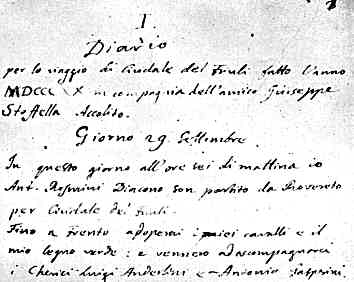 I.
Diario
per lo viaggio di Cividale del Friuli fatto l'anno
MDCCCXX in compagnia dell'amico Giuseppe
Stoffella Accolito.
Giorno 29 Settembre.
In questo giorno all'ore sei di mattina io
Ant. Rosmini Diacono son partito da Rovereto
per Cividale del Friuli.
Fino a Trento adoperai i miei cavalli e il
mio legno verde: e vennero ad accompagnarci
i Cherici Luigi Anderlini e Antonio